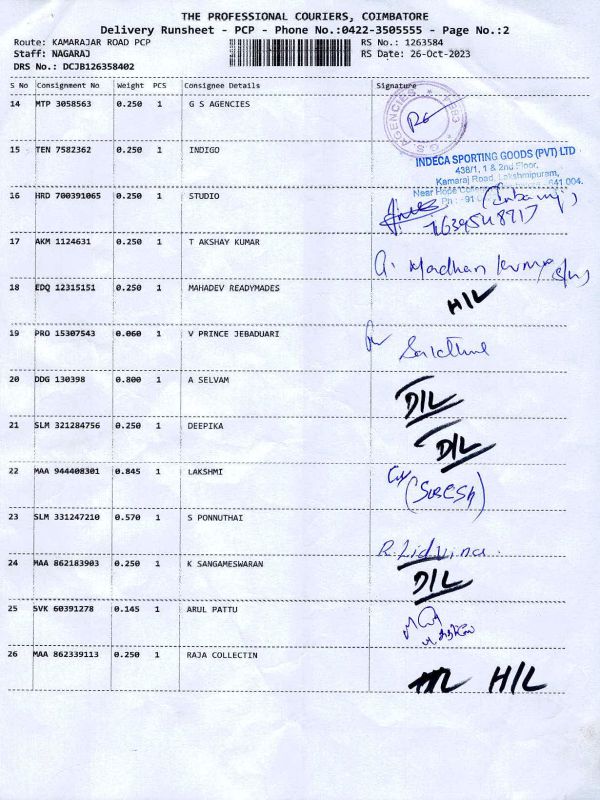 THE PROFESSIONAL COURIERS, COIMBATORE
Delivery Runsheet - PCP - Phone No.:0422-3505555 - Page No.:2
Route: KAMARAJAR ROAD PCP RS No.: 1263584
Staff: NAGARAJ RS Date: 26-Oct-2023
DRS No.: DCJB126358402
S No Consignment No Weight PCS Consignee Details Signature
14 MTP 3058563 0.250 1 G S AGENCIES
G.S AGENCIES
15 TEN 7582362 0.250 1 INDIGO
INDECA SPORTING GOODS (PVT) LTD
438/1, 1 & 2nd Floor,
Kamaraj Road, Lakshmipuram,
Near Hope College, 641 004.
Ph : +91
16 HRD 700391065 1 STUDIO
17 AKM 1124631 0.250 1 T AKSHAY KUMAR
G. Madhan kumar
18 EDQ 12315151 0.250 1 MAHADEV READYMADES H/L
19 PRO 15307543 0.060 1 V PRINCE JEBADUARI
20 DDG 130398 0.800 1 A SELVAM D/L
21 SLM 321284756 0.250 1 DEEPIKA D/L
22 MAA 944408301 0.845 1 LAKSHMI (SURESH)
23 SLM 331247210 0.570 1 S PONNUTHAI R. Lidvina
24 MAA 862183903 0.250 1 K SANGAMESWARAN D/L
25 SVK 60391278 0.145 1 ARUL PATTU
26 MAA 862339113 0.250 1 RAJA COLLECTIN H/L